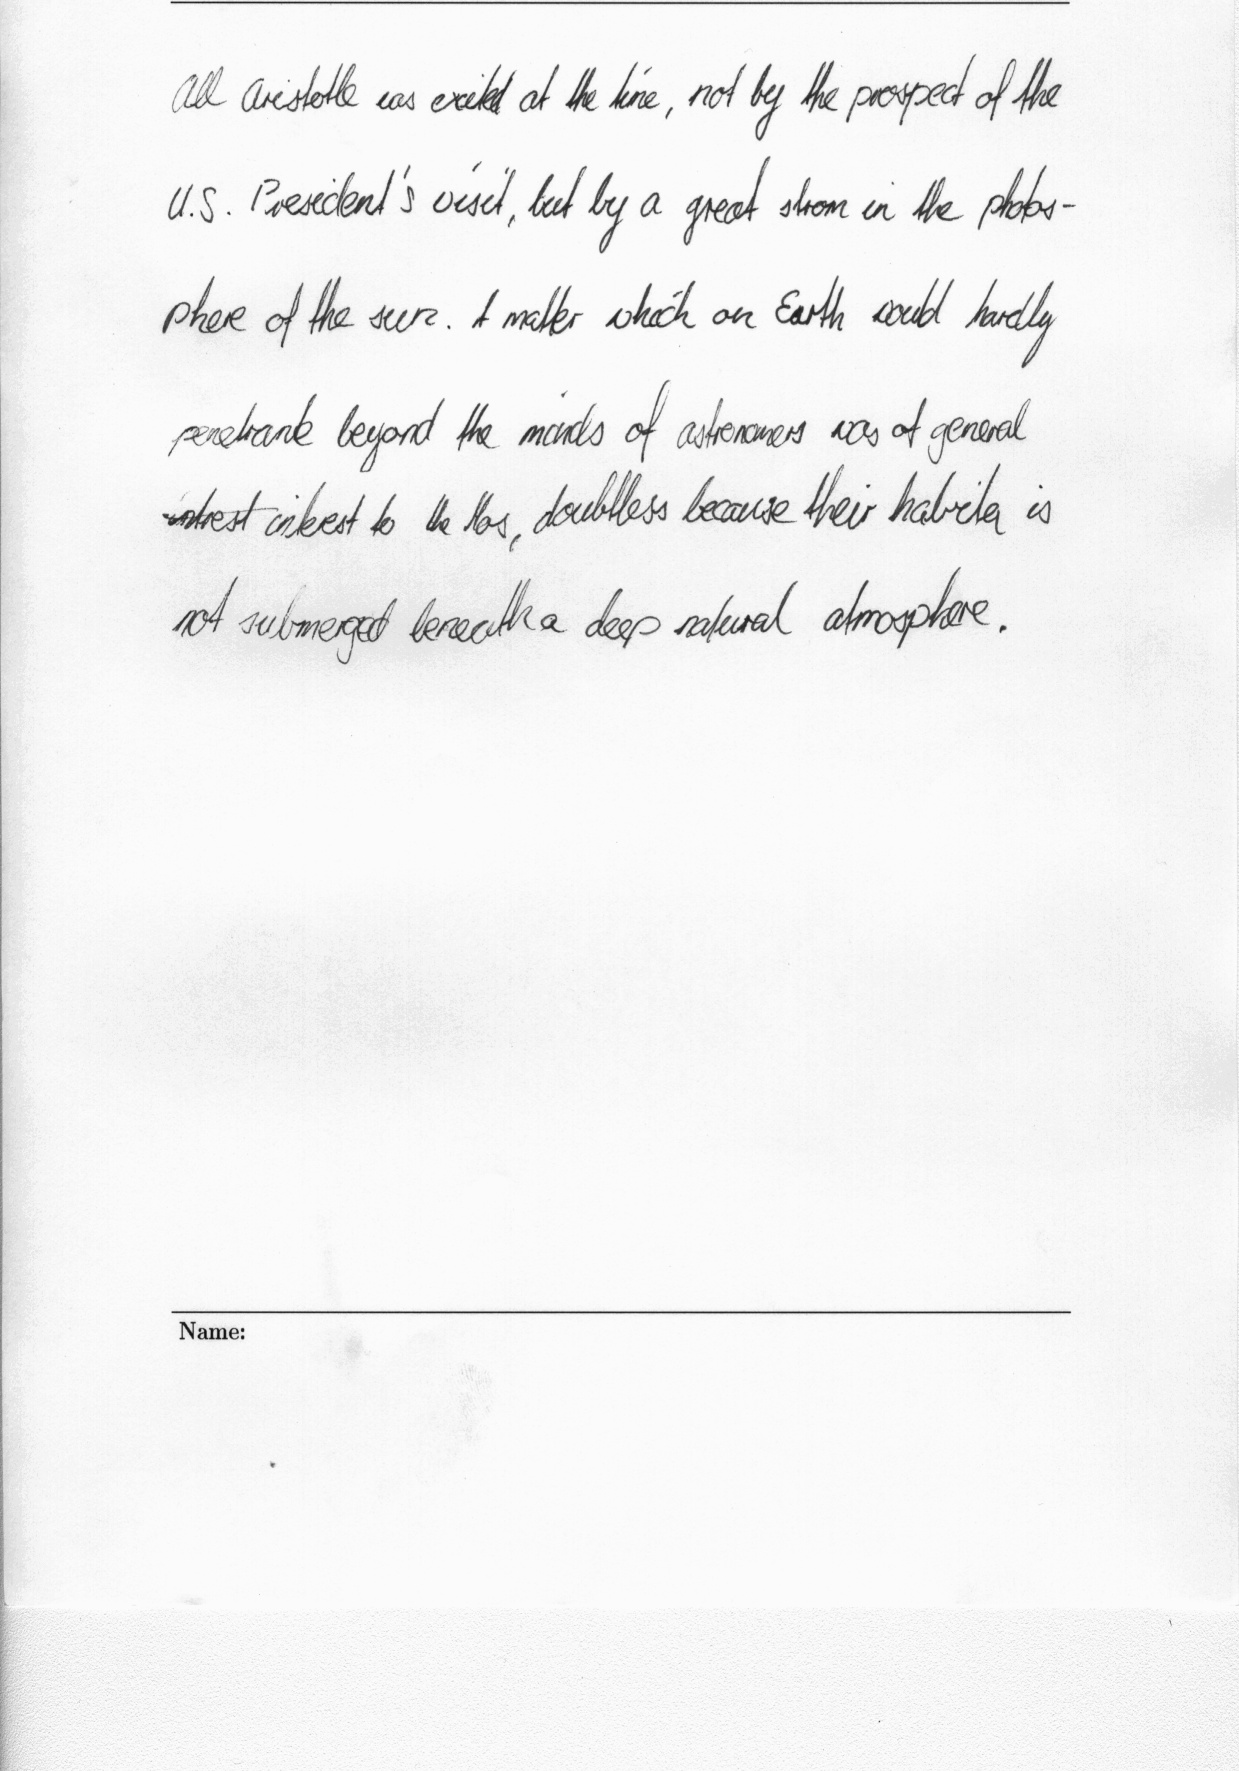 All Aristotle was excited at the time, not by the prospect of the
U.S. President's visit, but by a great strom in the photos-
phere of the sun. A matter which on Earth would hardly
penetrank beyond the minds of astronomers was of general
intrest interest to the Mos, doubtless because their habita is
not submerged beneath a deep natural atmosphere.
Name: